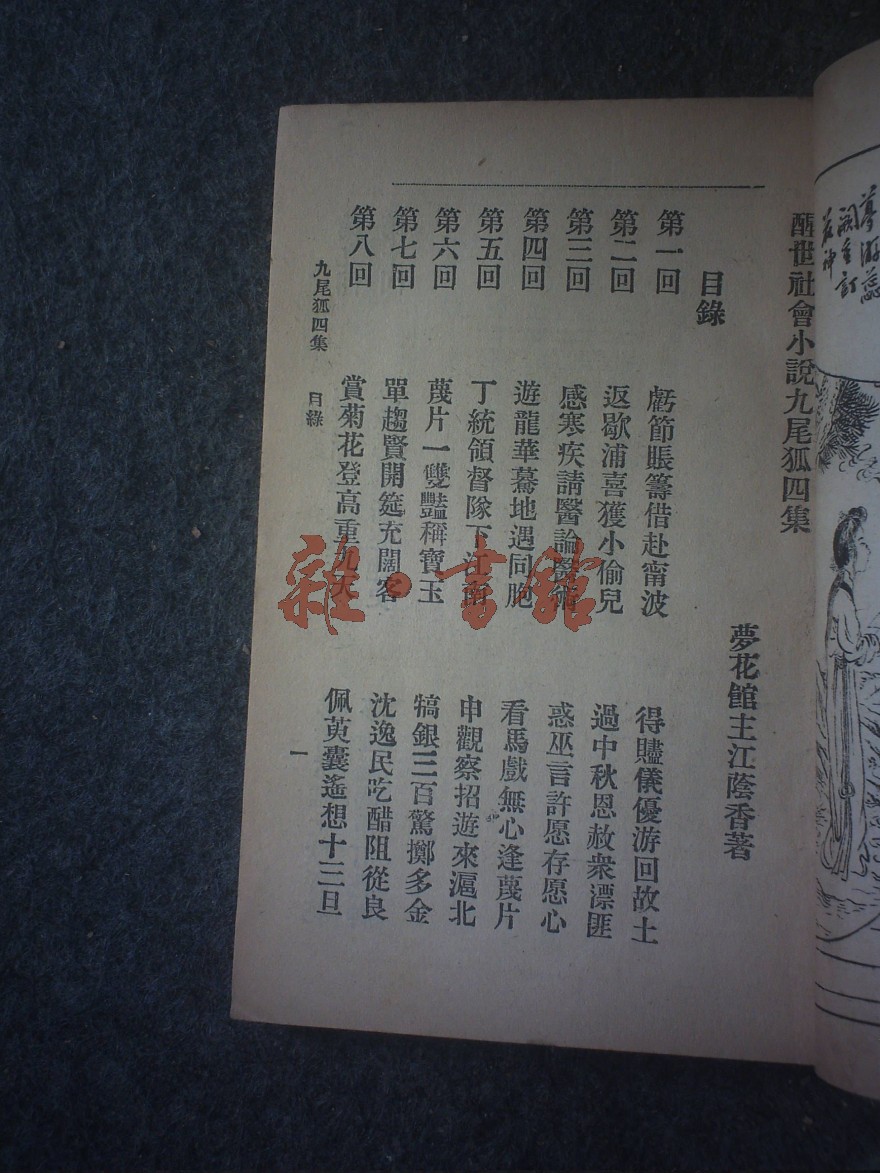 醒世社會小說九尾狐四集
夢花館主江蔭香著
目錄
第一回 虧節賬籌借赴甯波 得贐儀優游回故土
第二回 返歇浦喜獲小偷兒 過中秋恩赦衆漂匪
第三回 感寒疾請醫論醫術 惑巫言許愿存愿心
第四回 遊龍華驀地遇同胞 看馬戲無心逢蔑片
第五回 丁統領督隊下江南 申觀察招遊來滬北
第六回 蔑片一雙豔稱寶玉 犒銀三百驚擲多金
第七回 單趨賢開筵充闊客 沈逸民吃醋阻從良
第八回 賞菊花登高重九天 佩萸囊遙想十三旦
九尾狐四集 目錄 一
雜·書館